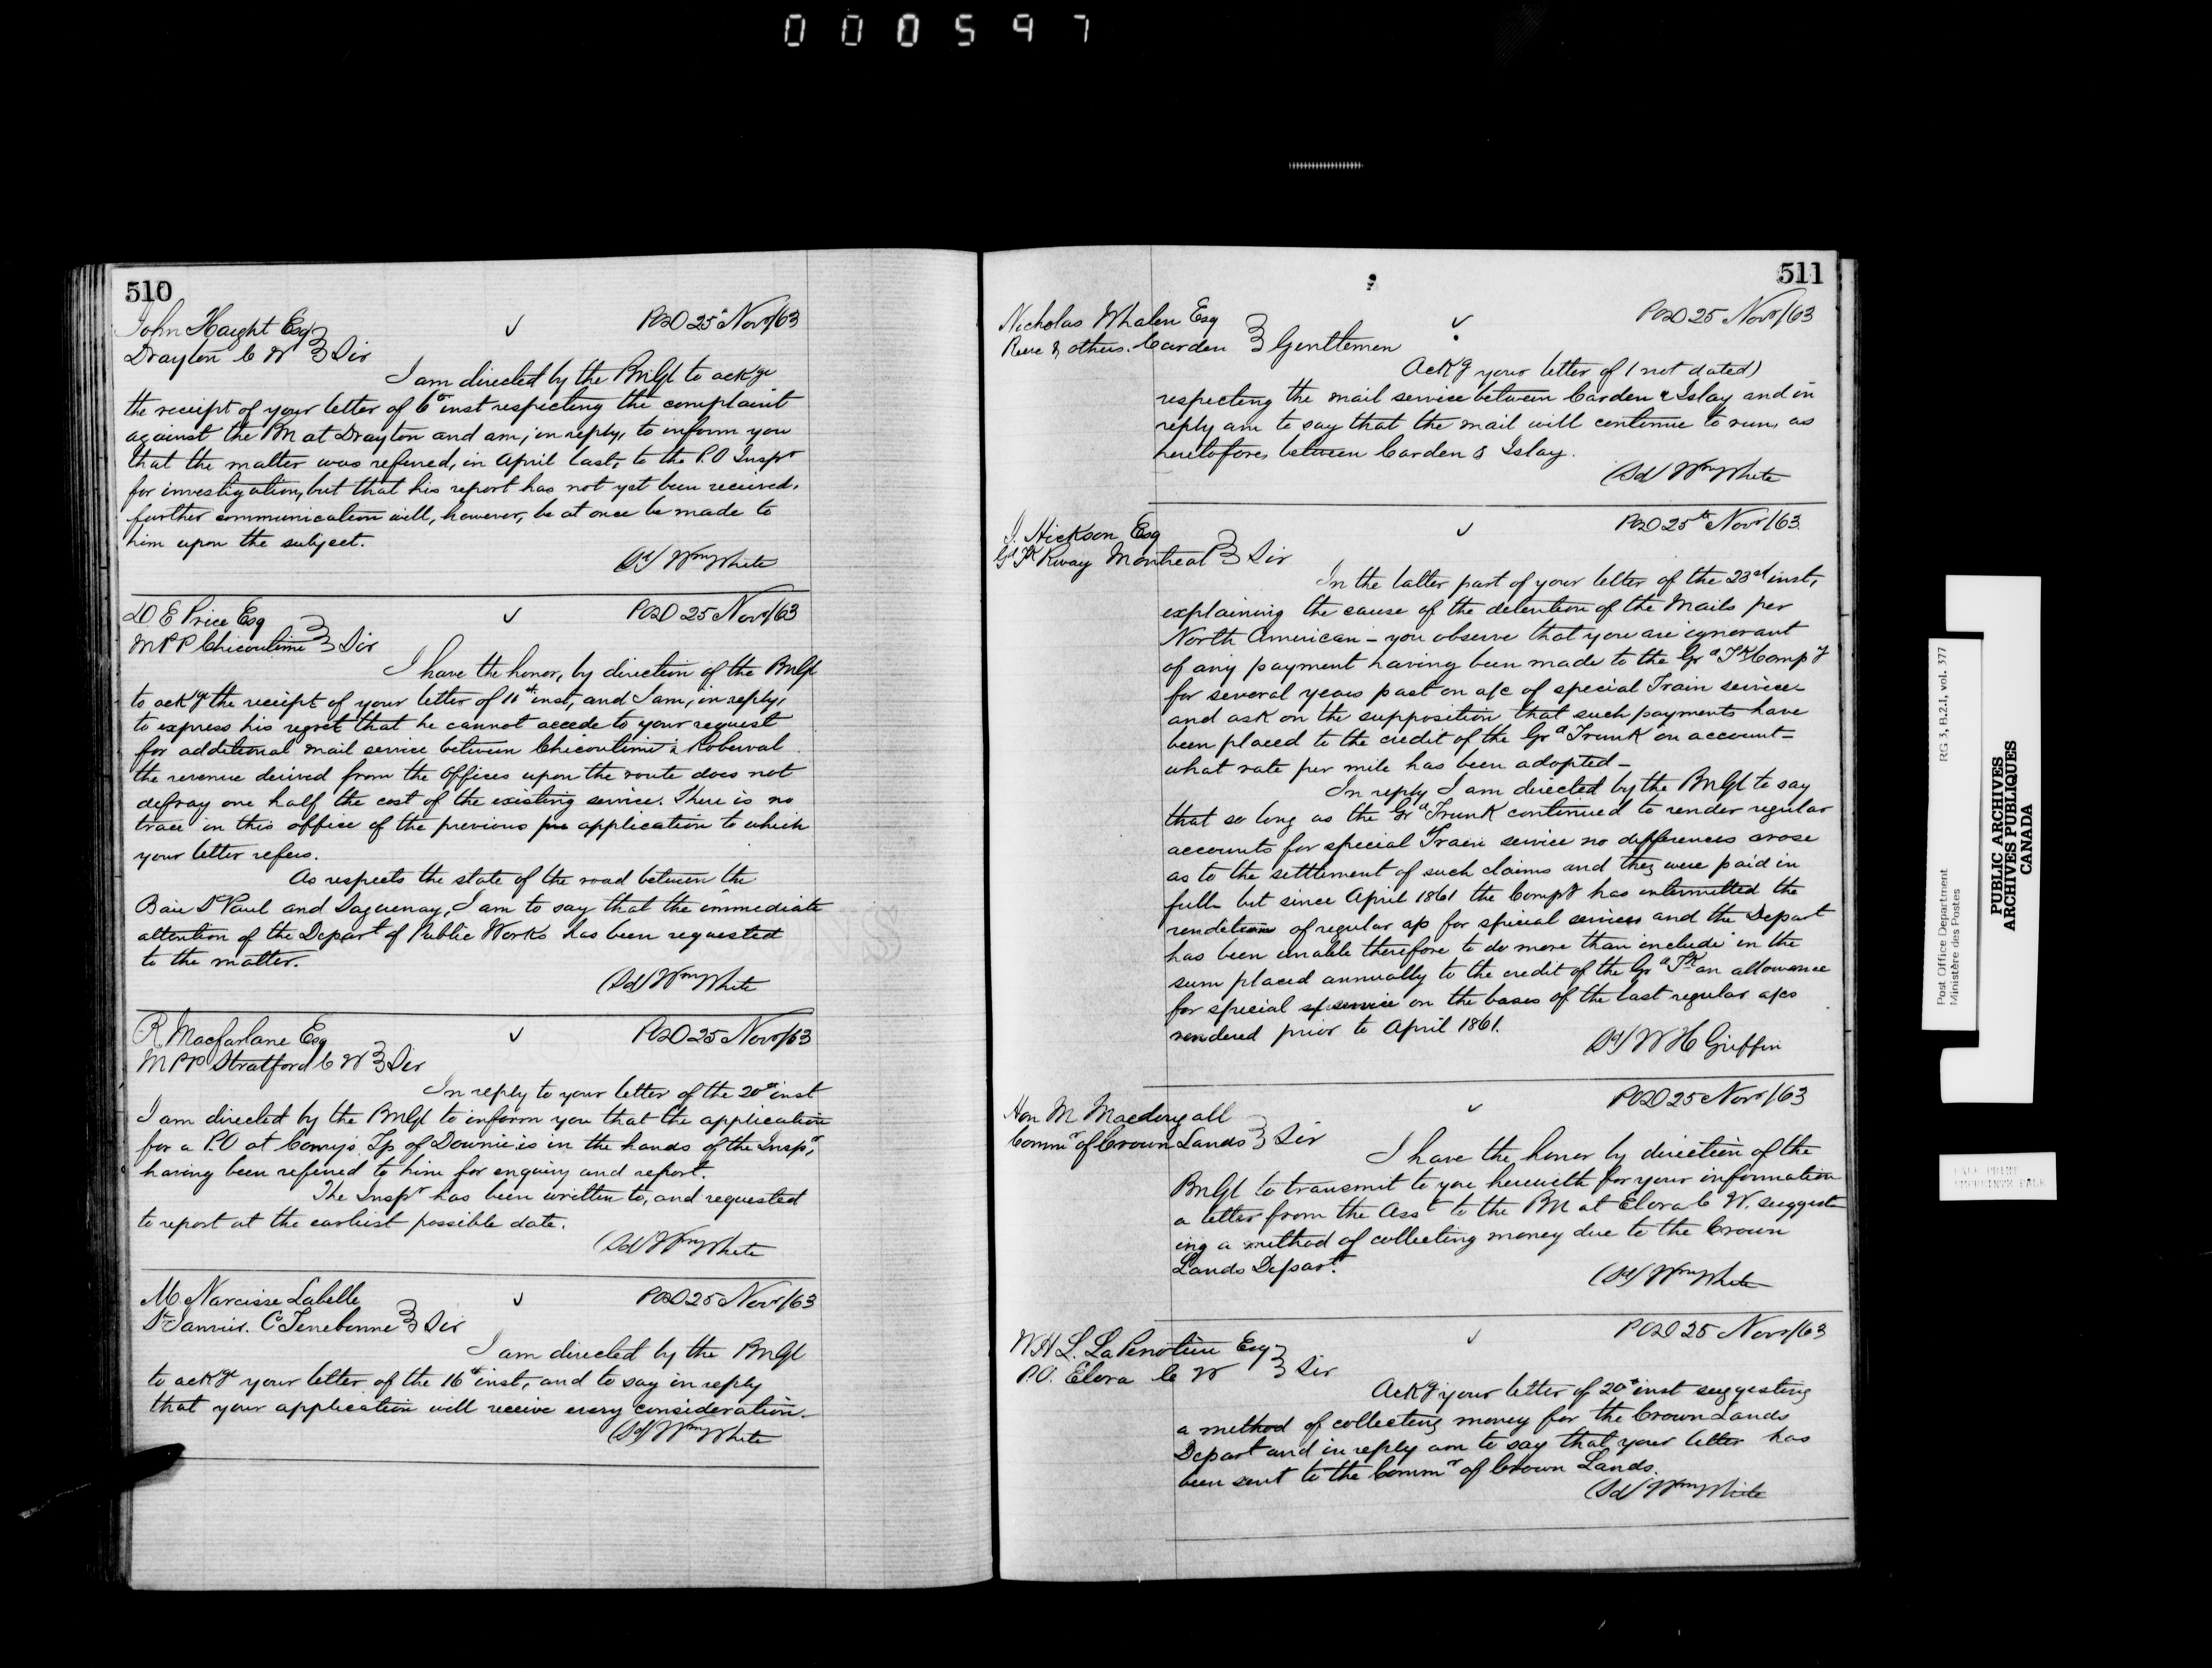 000597
510
John Haight Esq
Drayton C W } Sir
✓
POD 25th Novr/63
I am directed by the PMGl to ackge
the receipt of your letter of 6th inst respecting the complaint
against the PM at Drayton and am, in reply, to inform you
that the matter was referred, in April last, to the P.O Inspr
for investigation, but that his report has not yet been received,
further communication will, however, be at once be made to
him upon the subject.
(Sd) Wm White
D. E Price Esq
MPP Chicoutimi } Sir
✓
POD 25 Novr/63
I have the honor, by direction of the PMGl
to ackge the receipt of your letter of 11th inst, and I am, in reply,
to express his regret that he cannot accede to your request
for additional mail service between Chicoutimi & Roberval
the revenue derived from the offices upon the route does not
defray one half the cost of the existing service. There is no
trace in this office of the previous application to which
your letter refers.
As respects the state of the road between the
Baie St Paul and Saguenay, I am to say that the immediate
attention of the Depart of Public Works has been requested
to the matter.
(Sd) Wm White
R. Macfarlane Esq
MPP Stratford C W } Sir
✓
POD 25 Novr/63
In reply to your letter of the 20th inst
I am directed by the PMGl to inform you that the application
for a P.O at Conroy's Tp of Downie is in the hands of the Inspr,
having been referred to him for enquiry and report.
The Inspr has been written to, and requested
to report at the earliest possible date.
(Sd) Wm White
M. Narcisse Labelle
St Janvier. C. Terrebonne } Sir
✓
POD 25 Novr/63
I am directed by the PMGl
to ackge your letter of the 16th inst, and to say in reply
that your application will receive every consideration.
(Sd) Wm White
511
Nicholas Whalen Esq
Reeve & others. Carden } Gentlemen
✓
POD 25 Novr/63
Ackg your letter of (not dated)
respecting the mail service between Carden & Islay and in
reply am to say that the mail will continue to run, as
heretofore, between Carden & Islay.
(Sd) Wm White
J. Hickson Esq
Gd Tk Rway Montreal } Sir
✓
POD 25th Novr/63
In the latter part of your letter of the 23rd inst,
explaining the cause of the detention of the Mails per
North American – you observe that you are ignorant
of any payment having been made to the Grd Tk Compy
for several years past on a/c of special Train service
and ask on the supposition that such payments have
been placed to the credit of the Grd Trunk on account –
what rate per mile has been adopted –
In reply I am directed by the PMGl to say
that so long as the Grd Trunk continued to render regular
accounts for special Train service no differences arose
as to the settlement of such claims and they were paid in
full – but since April 1861 the Compy has intermitted the
rendition of regular a/s for special services and the Depart
has been unable therefore to do more than include in the
sum placed annually to the credit of the Grd Tk an allowance
for special sp service on the bases of the last regular a/cs
rendered prior to April 1861.
(Sd) W H Griffin
Hon M Macdougall
Commr of Crown Lands } Sir
✓
POD 25 Novr/63
I have the honor by direction of the
PMGl to transmit to you herewith for your information
a letter from the Asst to the PM at Elora C W. suggest
ing a method of collecting money due to the Crown
Lands Depart.
(Sd) Wm White
W H L. LaPenotiere Esq
P.O. Elora C W } Sir
✓
POD 25 Novr/63
Ackg your letter of 20th inst suggesting
a method of collecting money for the Crown Lands
Depart and in reply am to say that your letter has
been sent to the Commr of Crown Lands.
(Sd) Wm White
Post Office Department RG 3, B.2.I, vol. 377
Ministère des Postes
PUBLIC ARCHIVES
ARCHIVES PUBLIQUES
CANADA